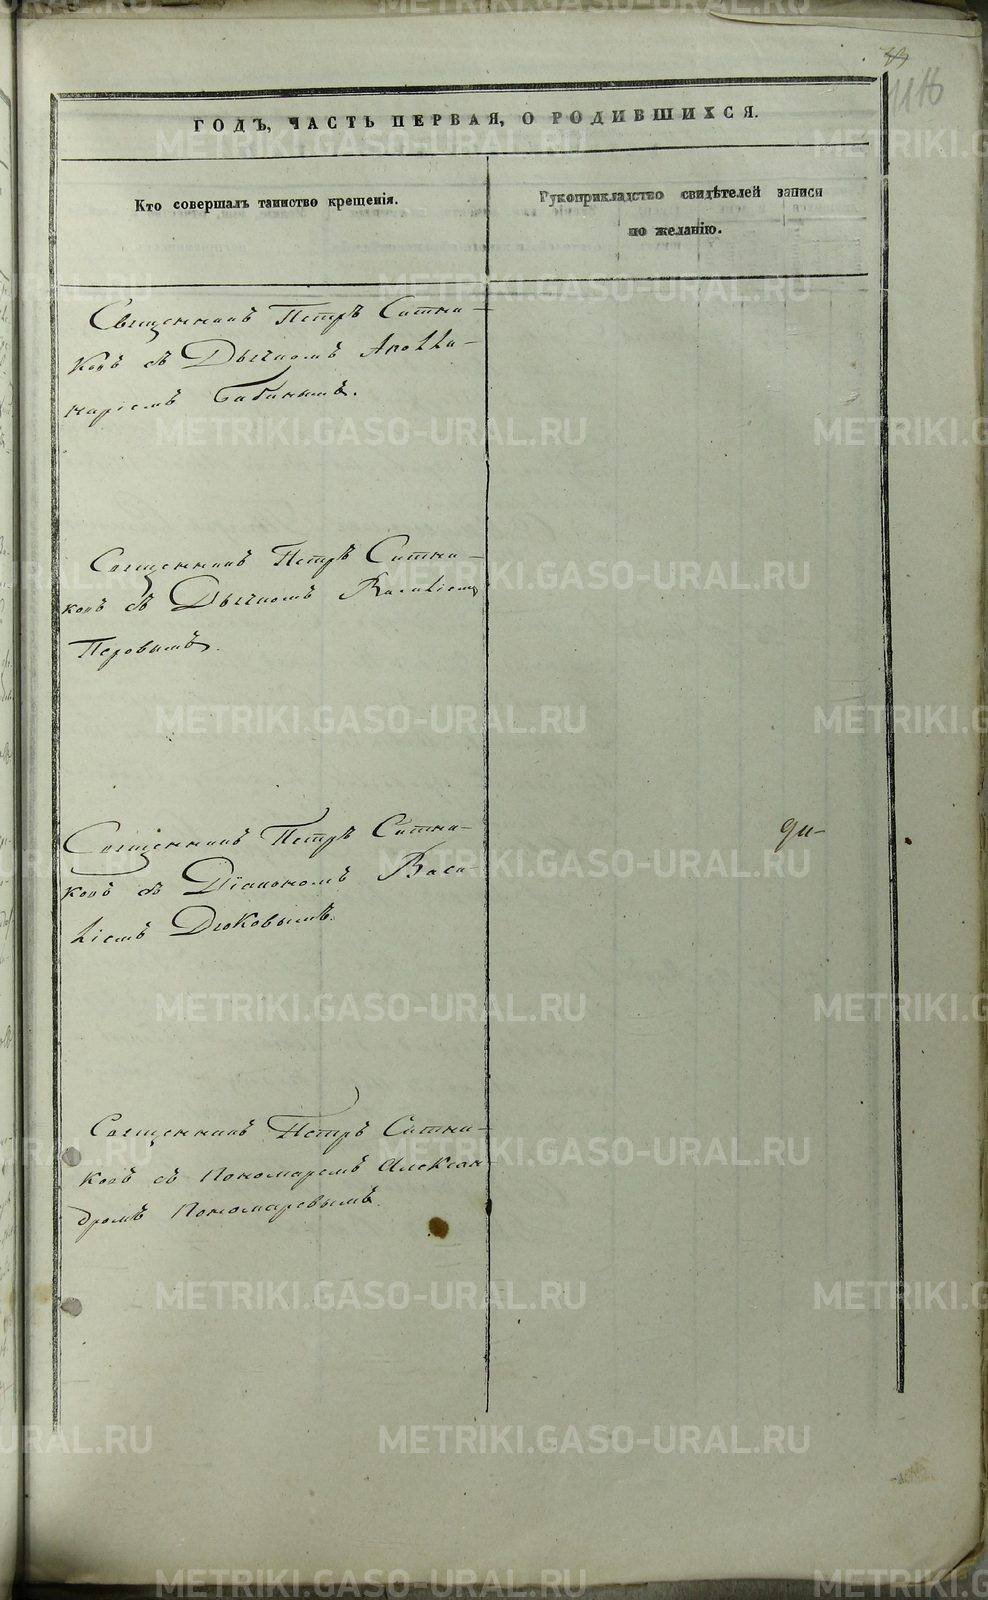 116
ГОДЪ, ЧАСТЬ ПЕРВАЯ, О РОДИВШИХСЯ.
Кто совершалъ таинство крещенія.
Рукоприкладство свидѣтелей записи
по желанію.
Священникъ Петръ Ситни-
ковъ съ Дьячкомъ Аполли-
наріемъ Бабинымъ.
Священникъ Петръ Ситни-
ковъ съ Дьячкомъ Василіемъ
Перовымъ.
Священникъ Петръ Ситни-
ковъ съ Діакономъ Васи-
ліемъ Дюковымъ.
Священникъ Петръ Ситни-
ковъ съ Пономаремъ Алексан-
дромъ Пономаревымъ.
METRIKI.GASO-URAL.RU